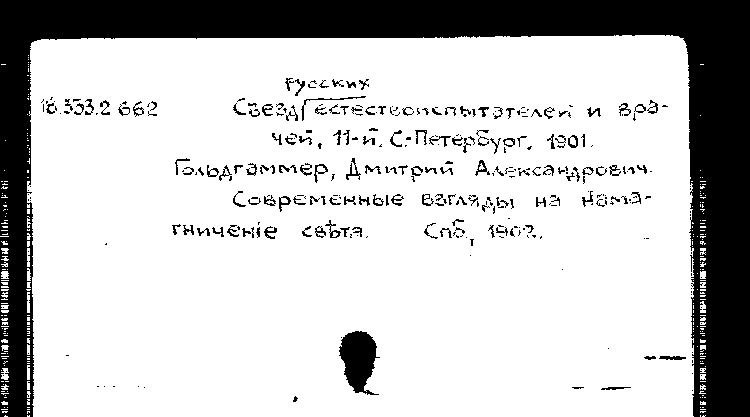 русских
18.353.2 662 Съезд естествоиспытателей и вра-
чей, 11-й. С.-Петербург. 1901.
Гольдгаммер, Дмитрий Александрович.
Современные взгляды на нама-
гниченіе свѣта. Спб., 1902.